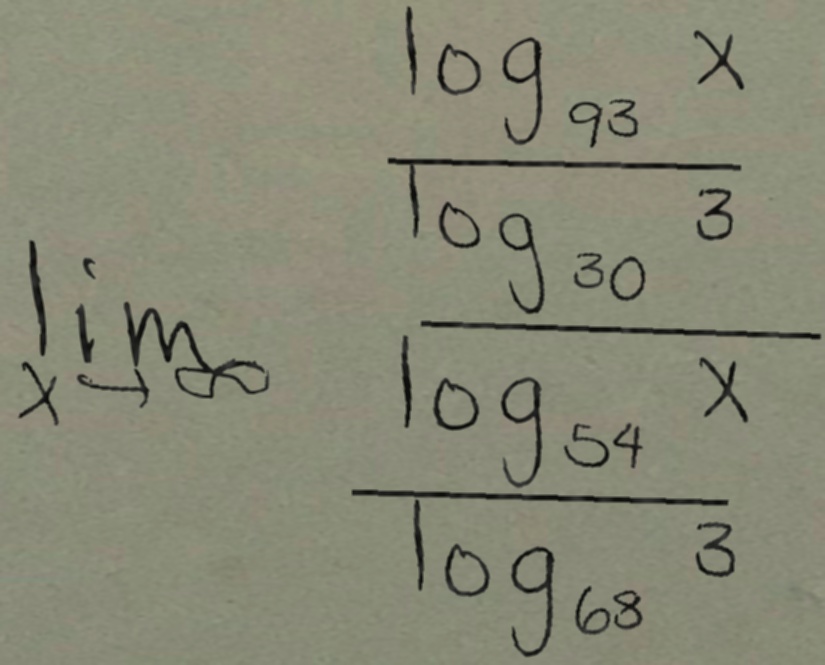 \lim_{x \to \infty} \frac{\frac{\log_{93} x}{\log_{30} 3}}{\frac{\log_{54} x}{\log_{68} 3}}